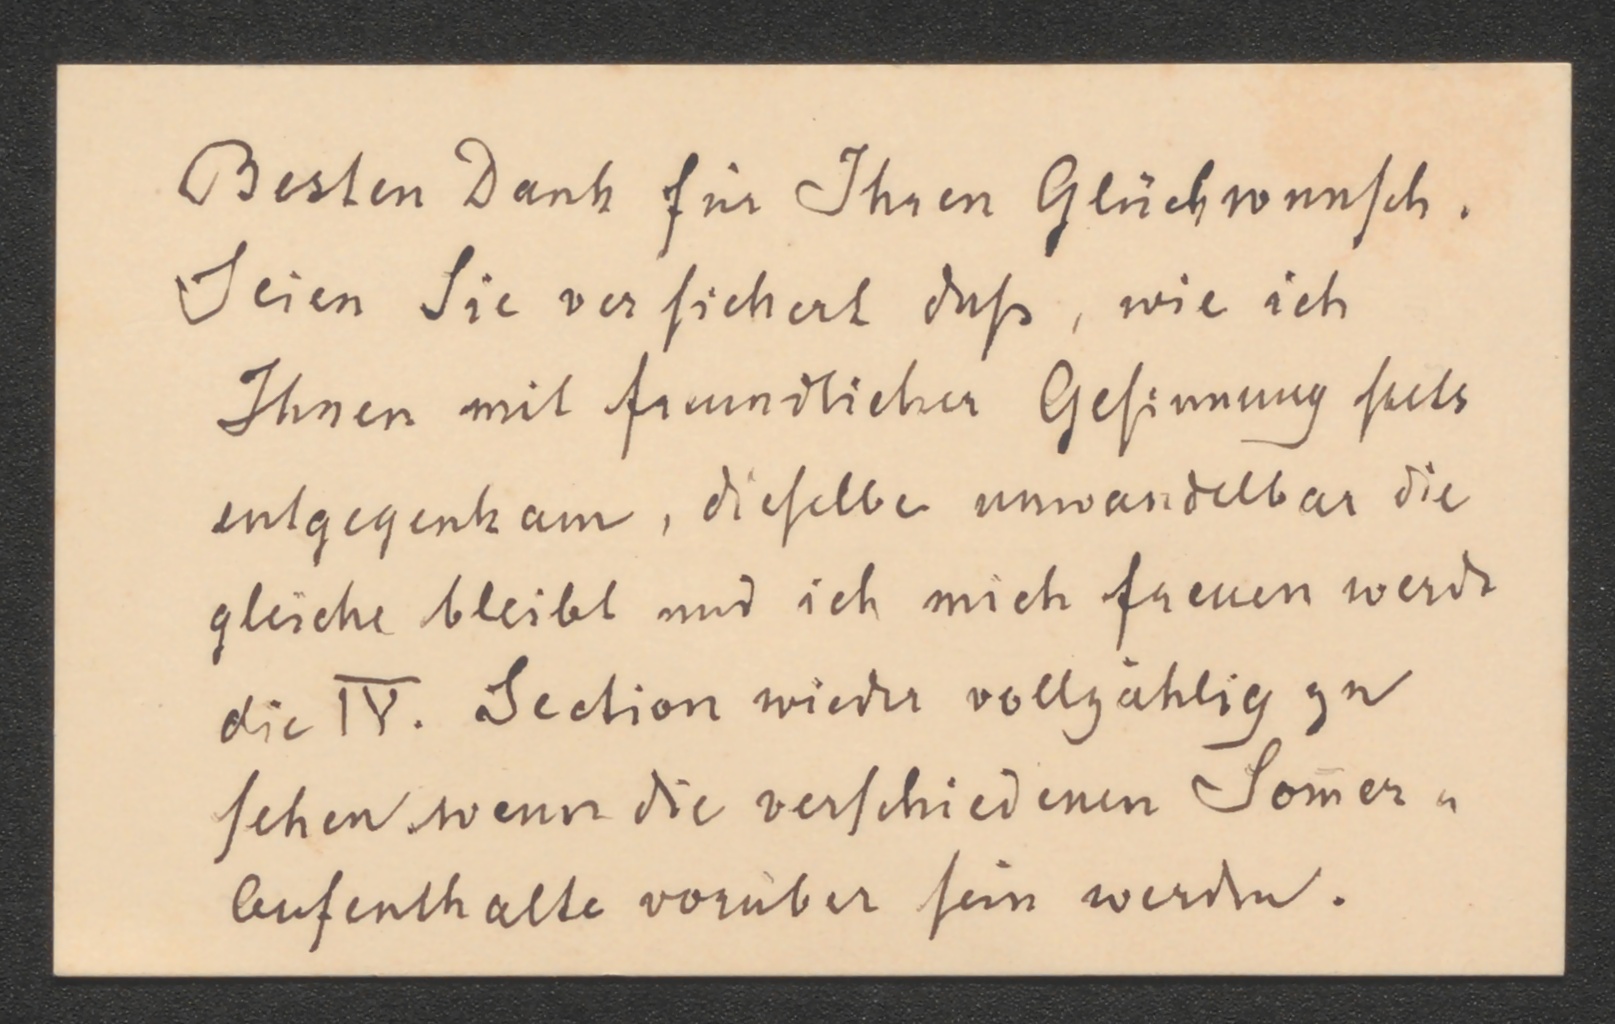 Besten Dank für Ihren Glückwunsch.
Seien Sie versichert daß, wie ich
Ihnen mit freundlicher Gesinnung stets
entgegenkam, dieselbe unwandelbar die
gleiche bleibt und ich mich freuen werde
die IV. Section wieder vollzählig zu
sehen wenn die verschiedenen Som̅er-
aufenthalte vorüber sein werden.